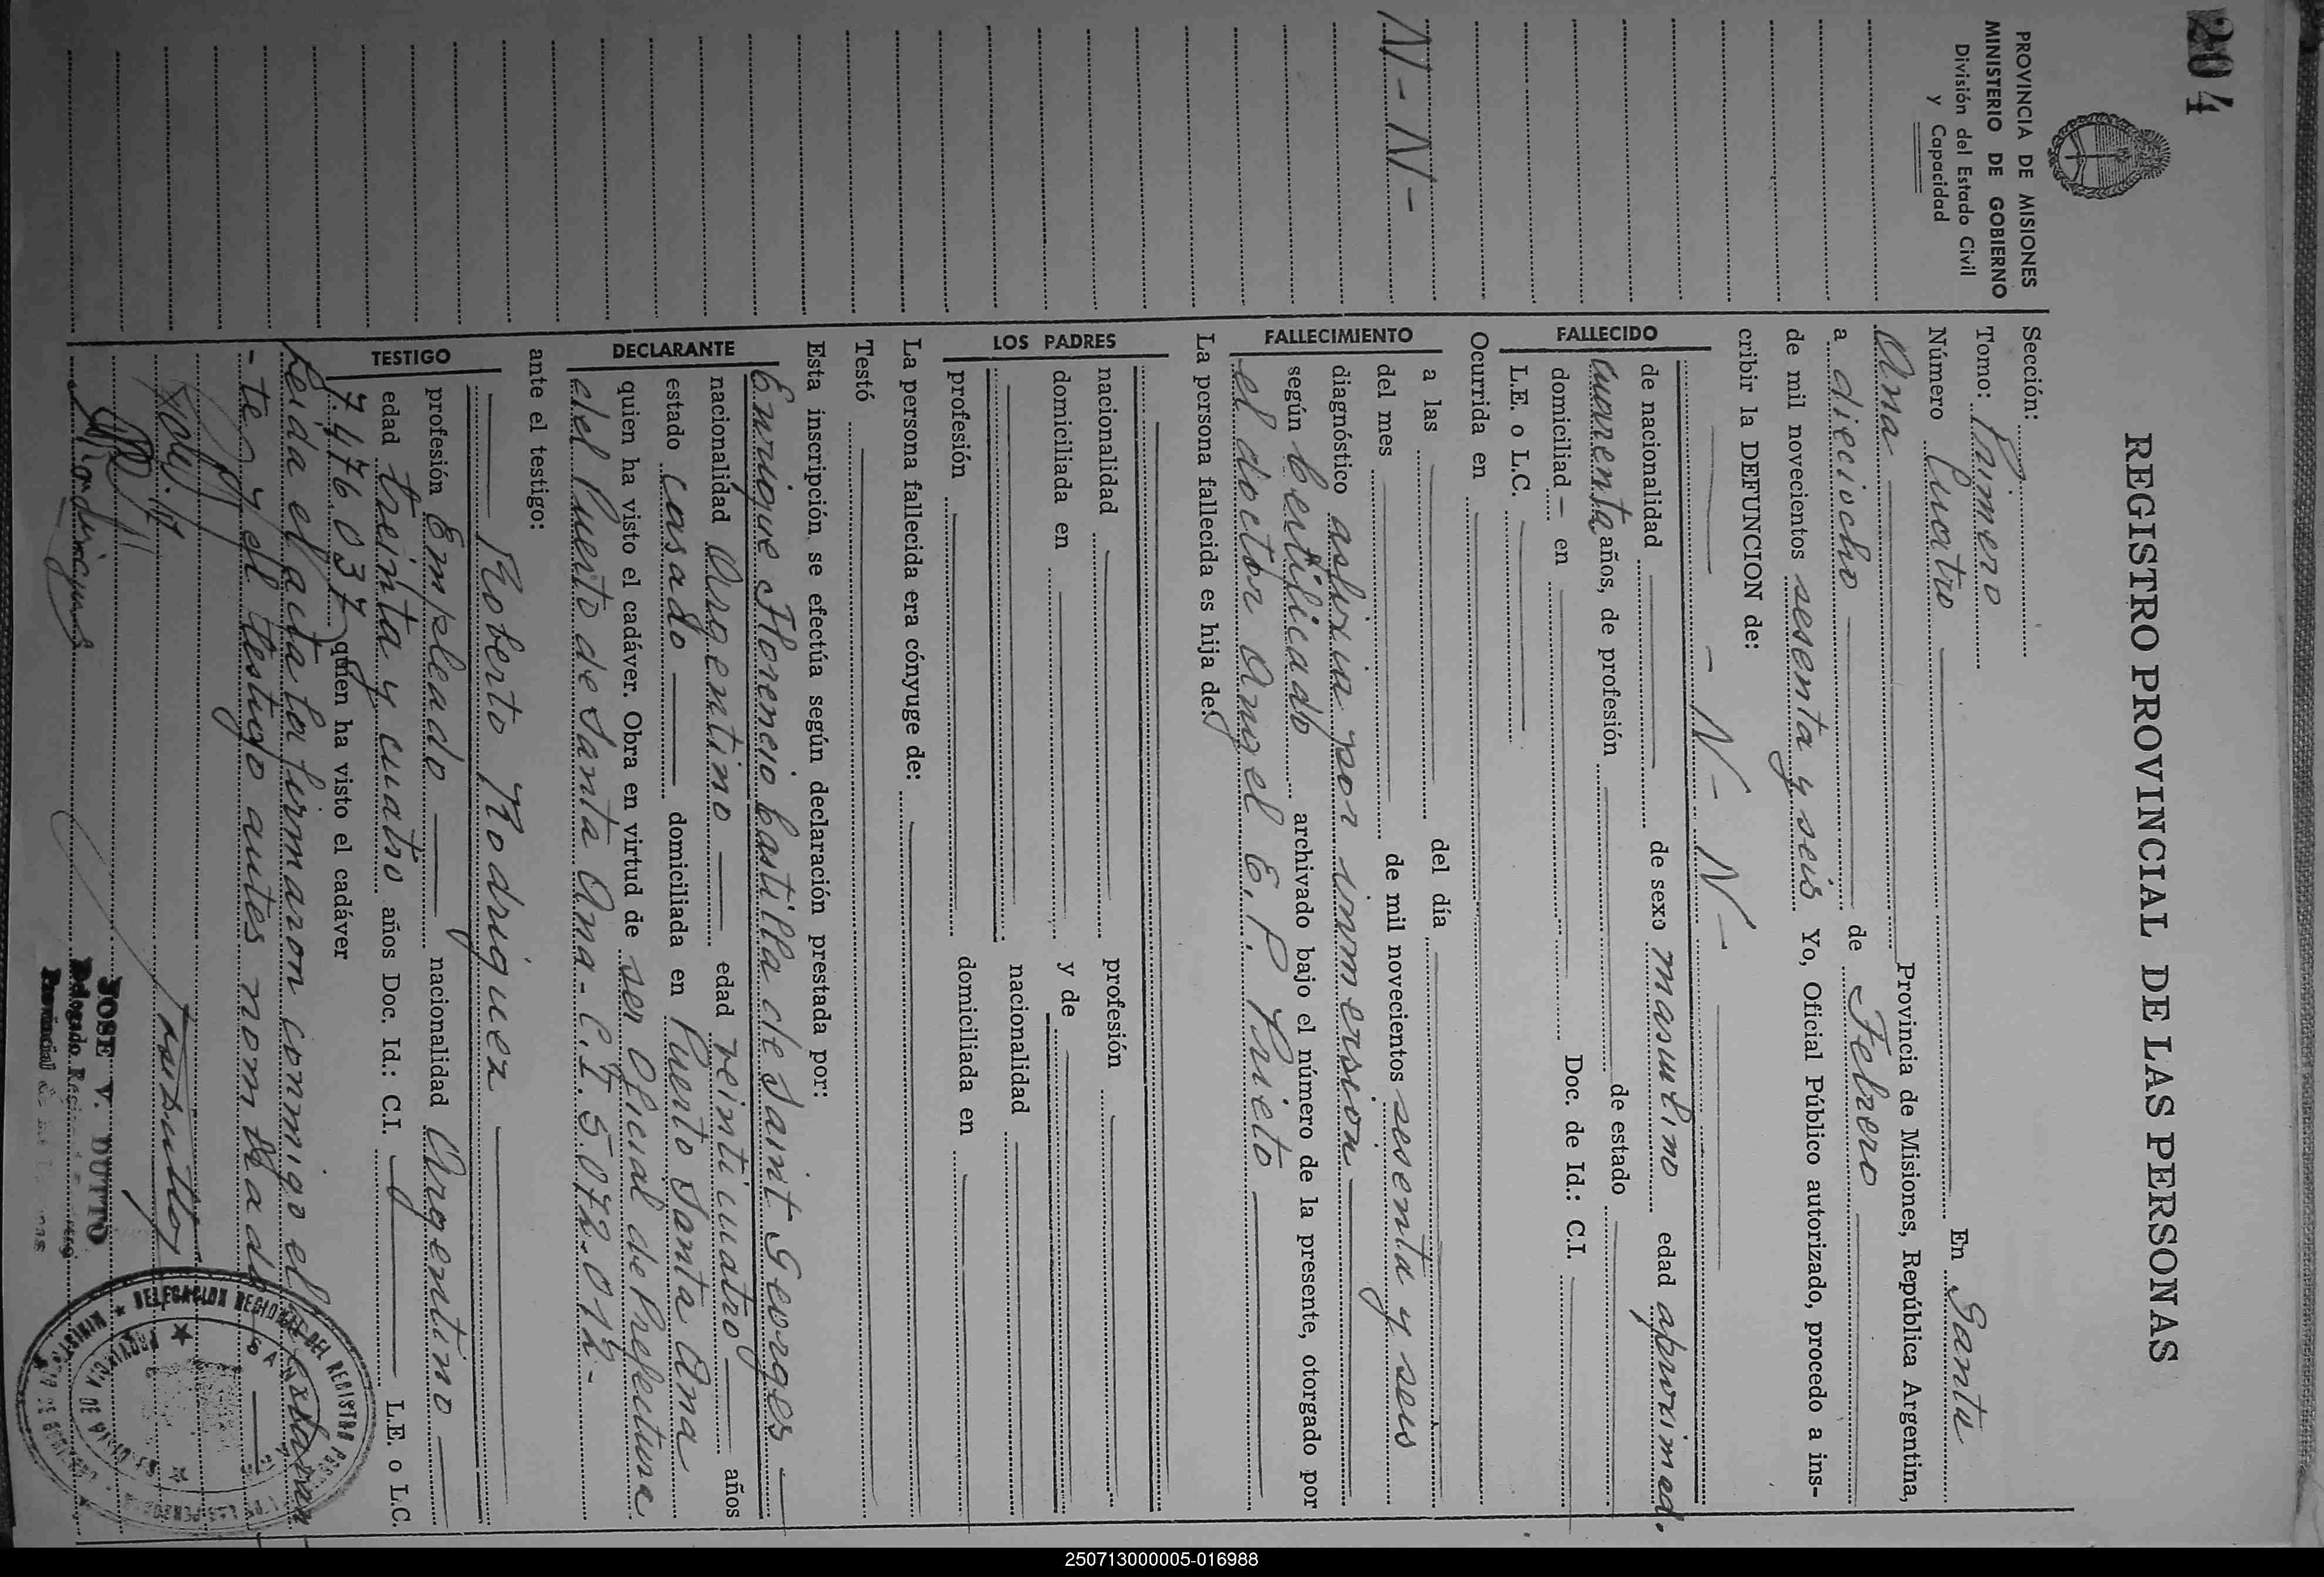 204
PROVINCIA DE MISIONES
MINISTERIO DE GOBIERNO
División del Estado Civil
y Capacidad
N-N-
REGISTRO PROVINCIAL DE LAS PERSONAS
Sección:
Tomo: Primero
Número Cuatro En Santa
Ana Provincia de Misiones, República Argentina,
a dieciocho de Febrero
de mil novecientos sesenta y seis Yo, Oficial Público autorizado, procedo a ins-
cribir la DEFUNCION de:
- N- N-
FALLECIDO
de nacionalidad de sexo masculino edad aproximad.
cuarenta años, de profesión de estado
domiciliad - en Doc. de Id.: C.I.
L.E. o L.C.
Ocurrida en
FALLECIMIENTO
a las del día
del mes de mil novecientos sesenta y seis
diagnóstico asfixia por inmersion
según certificado archivado bajo el número de la presente, otorgado por
el doctor Angel E. P. Prieto
La persona fallecida es hija de:
LOS PADRES
nacionalidad profesión
domiciliada en y de
nacionalidad
profesión domiciliada en
La persona fallecida era cónyuge de:
Testó
Esta inscripción se efectúa según declaración prestada por:
DECLARANTE
Enrique Florencio Castilla de Saint Georges
nacionalidad Argentino edad veinticuatro años
estado casado domiciliada en Puerto Santa Ana
quien ha visto el cadáver. Obra en virtud de ser Oficial de Prefectura
del Puerto de Santa Ana - C.I. 5.072.012.-
ante el testigo:
TESTIGO
Roberto Rodriguez
profesión Empleado nacionalidad Argentino
edad treinta y cuatro años Doc. Id.: C.I. L.E. o L.C.
7.476.037 quien ha visto el cadáver
Leida el acta la firmaron conmigo el
-te y el testigo antes nombrado
JOSE V. DUTTO
Delegado
Provincial
DELEGACION REGIONAL DEL REGISTRO
PROVINCIA DE MISIONES
250713000005-016988